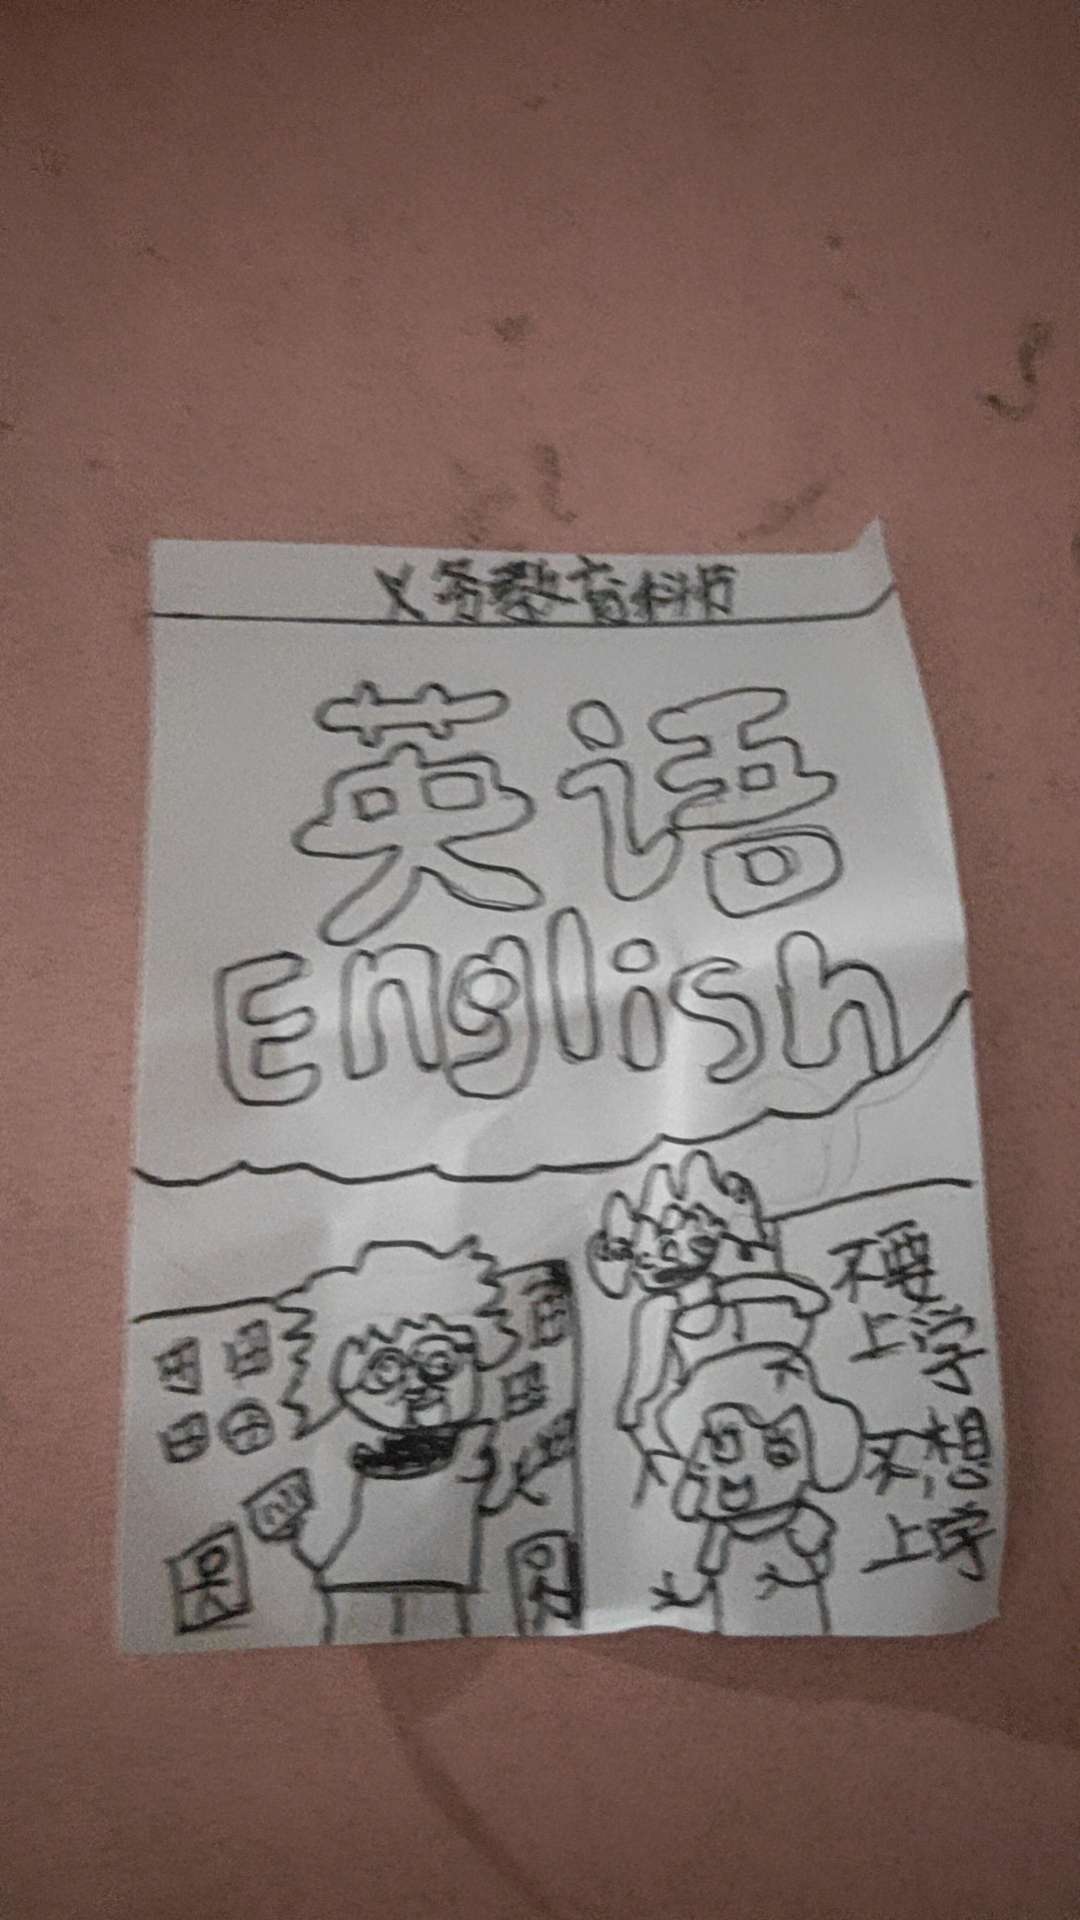 义务教育科书
英语
English
不要
上学
不想
上学